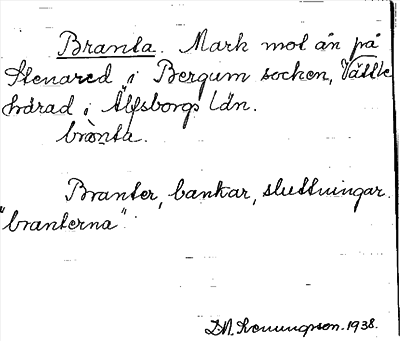 Branta. Mark mot ån på
Stenared i Bergum socken, Vättle
härad i Älfsborgs län.
brànta.
Branter, bankar, sluttningar.
"branterna"
1938.